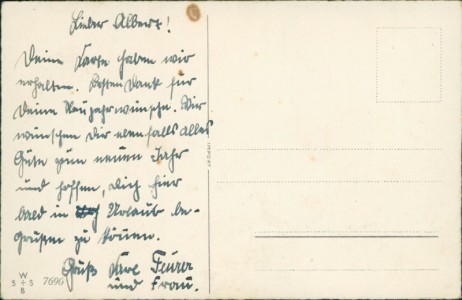 Lieber Albert!
Deine Karte haben wir
erhalten. Besten Dank für
Deine Neujahrwünsche. Wir
wünschen Dir ebenfalls alles
Gute zum neuen Jahr
und hoffen, Dich hier
bald in Urlaub be-
grüßen zu können.
Gruß Karl Feurer
und Frau.
W
S + S
B
7696